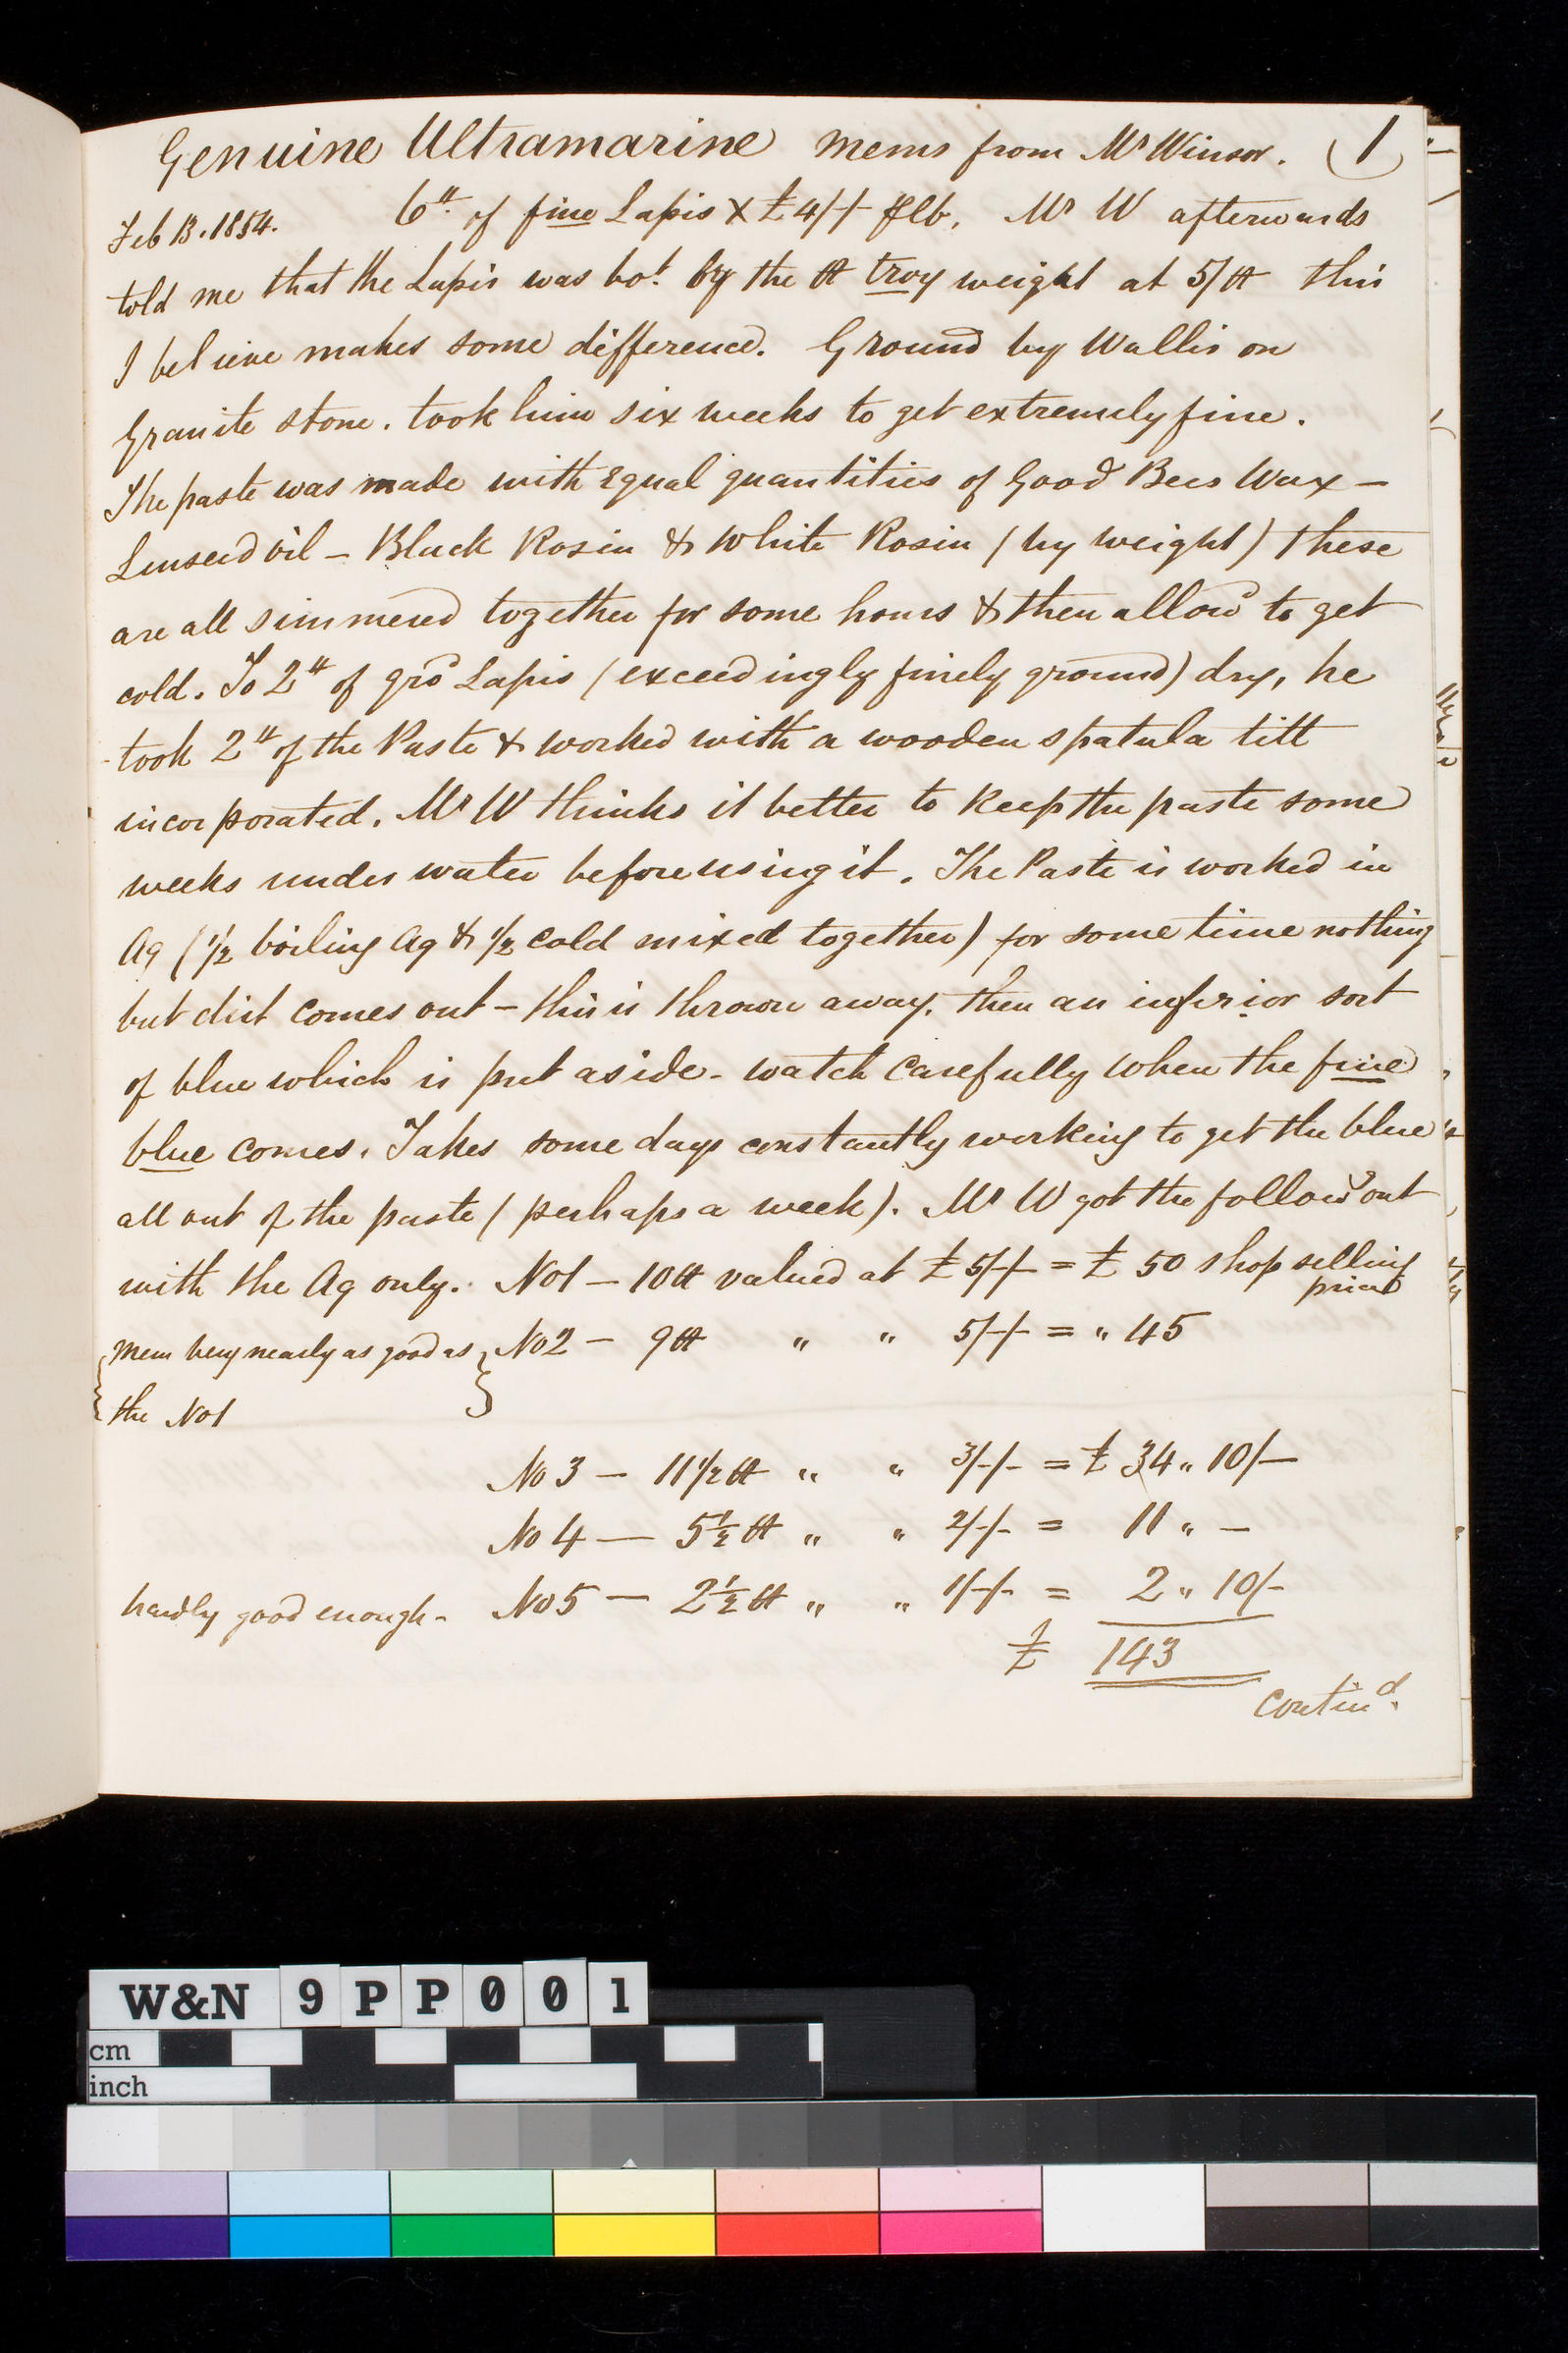 Genuine Ultramarine Mems from Mr Winsor. (1)
Feb 13. 1854. 6lb. of fine Lapis X £4/-/- ₱lb. Mr W afterwards
told me that the Lapis was bot. by the lb troy weight at 5/lb this
I believe makes some difference. Ground by Wallis on
Granite stone. took him six weeks to get extremely fine.
The paste was made with Equal quantities of Good Bees Wax –
Linseed oil – Black Rosin & White Rosin (by weight) These
are all simmered together for some hours & then allowd to get
cold. To 2lb of grd Lapis (exceedingly finely ground) dry, he
took 2lb of the Paste & worked with a wooden spatula till
incorporated. Mr W thinks it better to Keep the paste some
weeks under water before using it. The Paste is worked in
Aq (1/2 boiling Aq & 1/2 cold mixed together) for some time nothing
but dirt comes out – this is thrown away. then an inferior sort
of blue which is put aside - watch carefully when the fine
blue comes. Takes some days constantly working to get the blue
all out of the paste (perhaps a week). Mr W got the followg out
with the Aq only. No1 – 10lb valued at £5/-/- = £50 shop selling
price
Mem very nearly as good as } No2 – 9lb " " 5/-/- = " 45
the No1
No 3 – 11 1/2 lb " " 3/-/- = £ 34 " 10/-
No 4 — 5 1/2 lb " " 2/-/- = 11 " –
hardly good enough - No5 — 2 1/2 lb " " 1/-/- = 2 " 10/-
£ 143
Contind.
W&N 9PP001
cm
inch